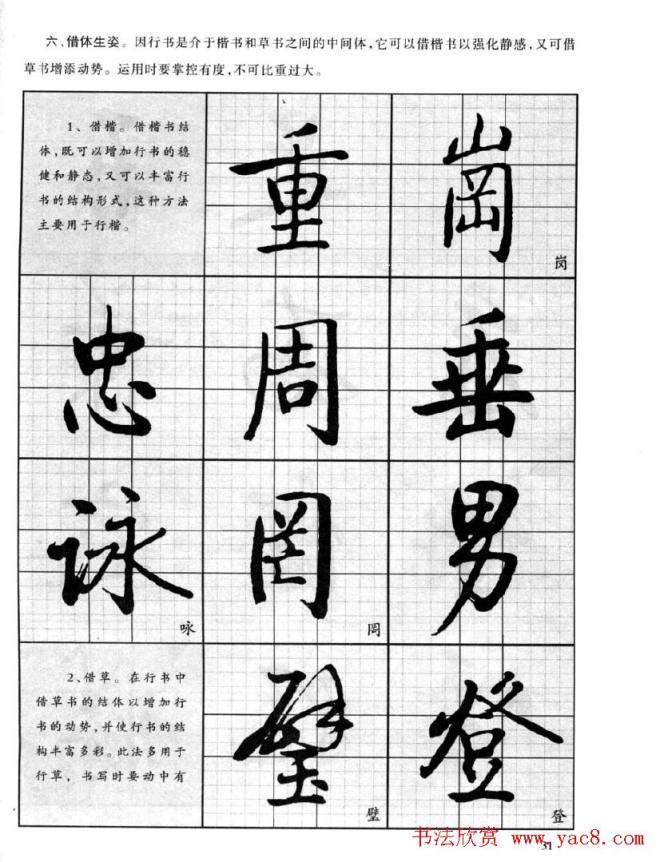 六、借体生姿。因行书是介于楷书和草书之间的中间体,它可以借楷书以强化静感,又可借
草书增添动势。运用时要掌控有度,不可比重过大。
1、借楷。借楷书结
体,既可以增加行书的稳
健和静态,又可以丰富行
书的结构形式,这种方法
主要用于行楷。
重
崗
岗
忠
周
垂
詠
咏
岡
男
2、借草。在行书中
借草书的结体以增加行
书的动势,并使行书的结
构丰富多彩。此法多用于
行草,书写时要动中有
璧
璧
登
登
书法欣赏 www.yac8.com
37